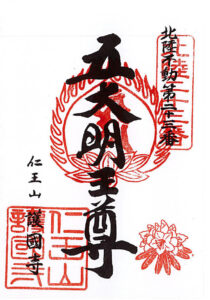 北陸不動第二十三番
五大明王尊
仁王山
護國寺
仁王山
護國寺